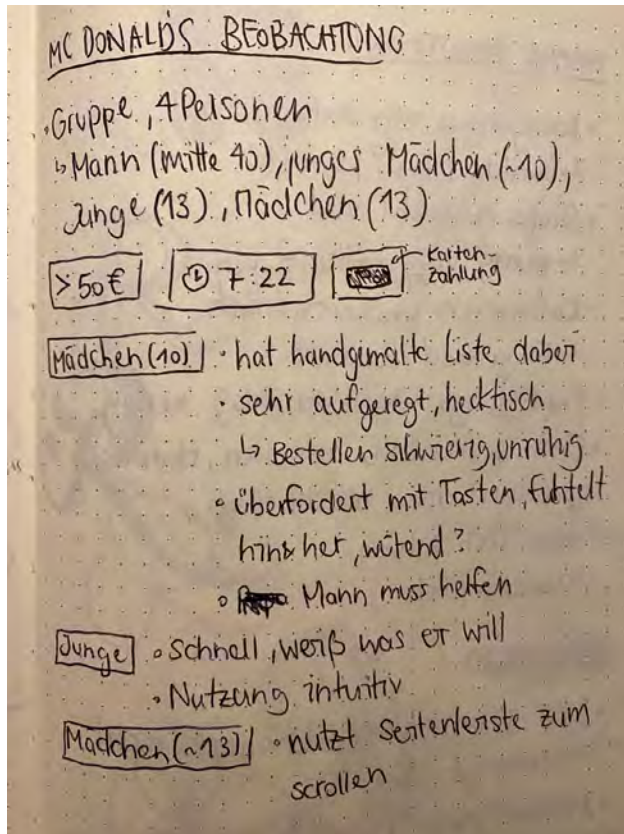 MC DONALD'S BEOBACHTUNG
• Gruppe, 4 Personen
↳ Mann (mitte 40), junges Mädchen (~10),
Junge (13), Mädchen (13)
>50€ 7:22 Karten-
zahlung
Mädchen (10) • hat handgemalte Liste dabei
• sehr aufgeregt, hecktisch
↳ Bestellen schwierig, unruhig
• überfordert mit Tasten, fuhtelt
hin & her, wütend?
• Mann muss helfen
Junge • Schnell, weiß was er will
• Nutzung intuitiv
Mädchen (~13) • nutzt Seitenleiste zum
scrollen